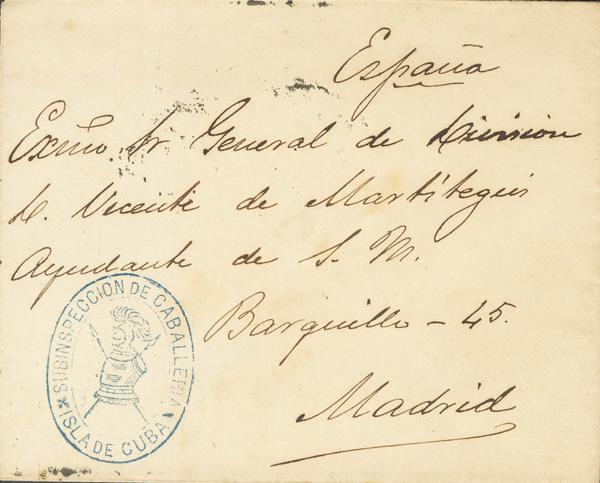 España
Excmo Sr General de Division
D. Vicente de Martítegui
Ayudante de S. M.
Barquillo - 45.
Madrid
SUBINSPECCION DE CABALLERIA
ISLA DE CUBA